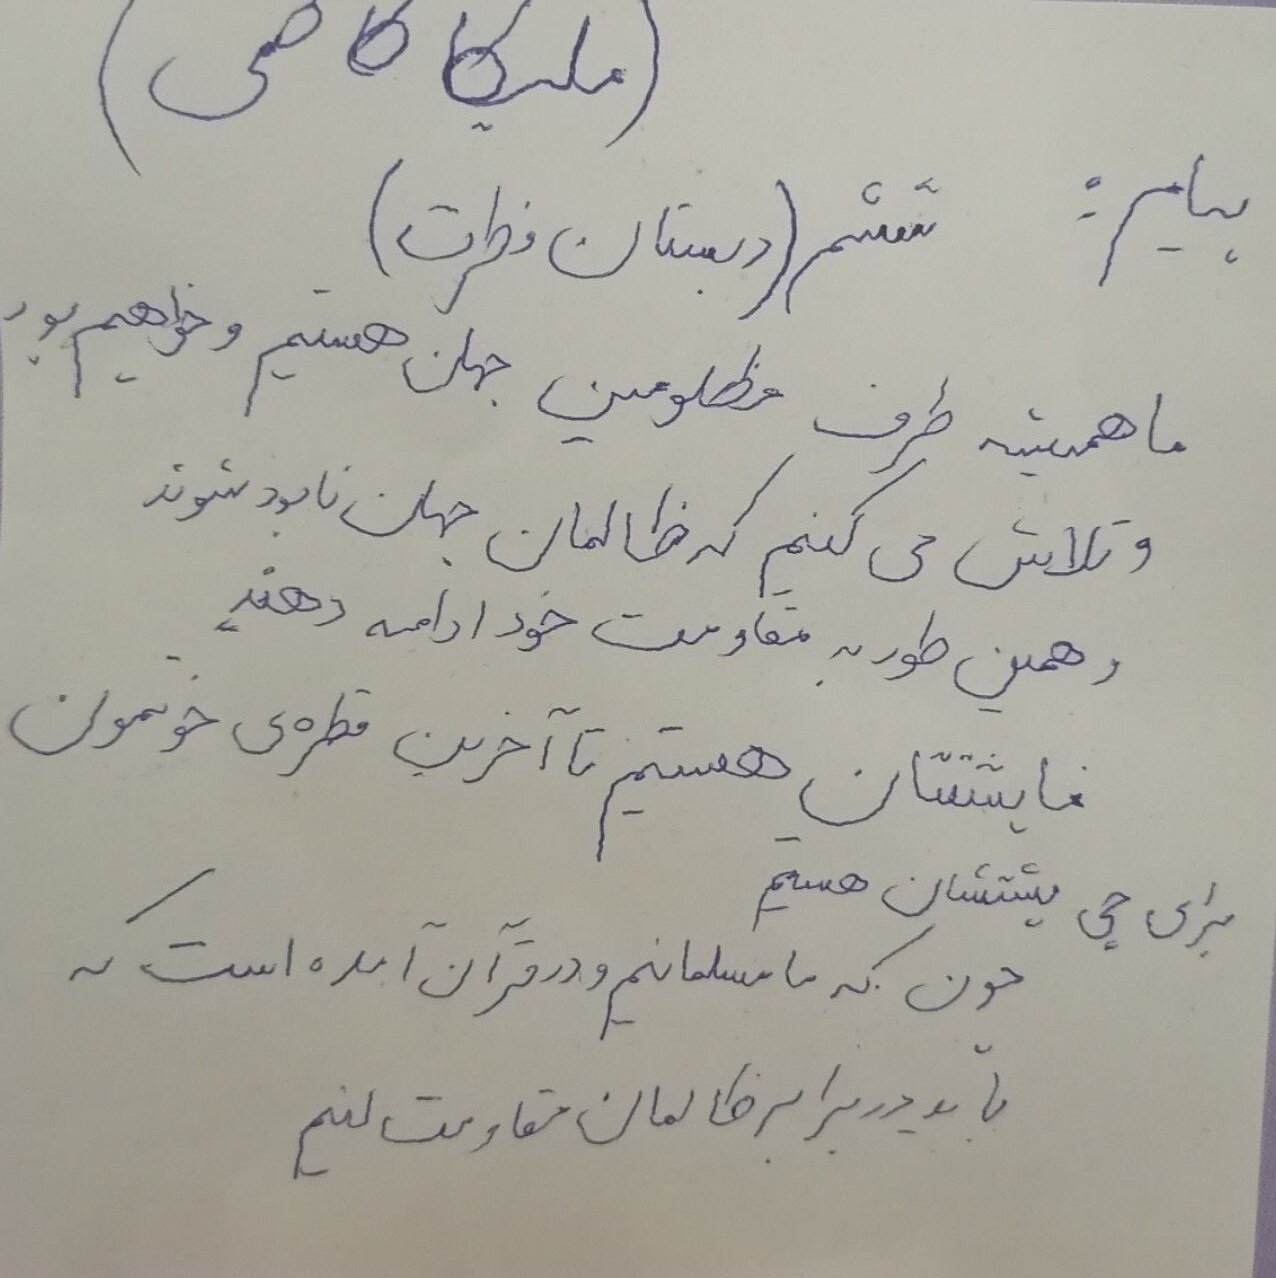 (ملیکا کاظمی)
پایه: ششم (دبستان فطرت)
ما همیشه طرف مظلومین جهان هستیم و خواهیم بود
و تلاش می کنیم که ظالمان جهان نابود شوند
و همین طور به مقاومت خود ادامه دهند
ما پشتشان هستیم تا آخرین قطره‌ی خونمون
برای چی پشتشان هستیم
چون که ما مسلمانیم و در قرآن آمده است که
باید در برابر ظالمان مقاومت کنیم